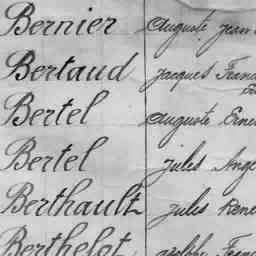 Bernier Auguste Jean
Bertaud Jacques Franc
Bertel Auguste Erne
Bertel Jules Ange
Berthault Jules René
Berthelot Adolphe Franc